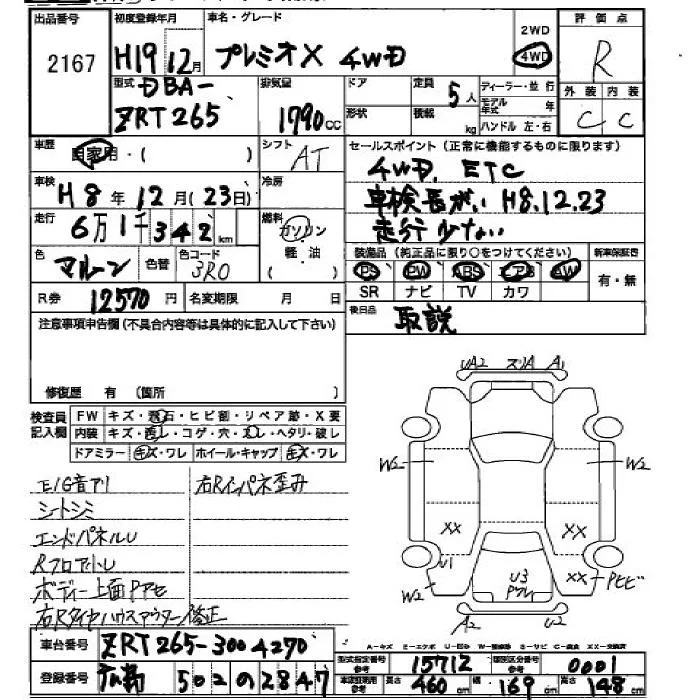 出品番号 2167
初度登録年月 H19 12月
車名・グレード プレミオX 4WD
2WD
4WD
評価点 R
外装 内装
C C
型式 DBA-
ZRT265
排気量 1790cc
ドア 定員 5人
形状 積載 kg
ディーラー・並行
モデル年式 年
ハンドル 左・右
車歴 自家用・( )
シフト AT
セールスポイント(正常に機能するものに限ります)
4WD. ETC
車検長がい H8.12.23
走行少ない
車検 H8年12月(23日)
冷房
走行 6万1千342km
燃料 ガソリン
軽・油
色 マルーン 色替 色コード 3R0
装備品(純正品に限り○をつけてください) 新車保証書
PS PW ABS エアB AW 有・無
SR ナビ TV カワ
R券 12570円 名変期限 月 日
後日品 取説
注意事項申告欄(不具合内容等は具体的に記入して下さい)
修復歴 有 (箇所 )
検査員記入欄
FW キズ・飛石・ヒビ割・リペア跡・X要
内装 キズ・汚レ・コゲ・穴・スレ・ヘタリ・破レ
ドアミラー キズ・ワレ ホイール・キャップ キズ・ワレ
E/G音アリ
シートシミ
エンドパネルU
RフロアトレU
ボディー上面Pアセ
右Rタイヤハウスアウター修正
右Rインパネ歪み
UA2 スリA A1
W2 W2
XX XX
U1 XX Pヒビ
U3
Pワレ
W2
A2 U2
車台番号 ZRT265-3004270
登録番号 502 の 2847
A=キズ E=エクボ U=凹み W=補修跡 S=サビ C=腐食 XX=交換済
型式指定番号 参考 15712 類別区分番号 参考 0001
車検証明用 参考 長さ 460cm 幅 169cm 高さ 148cm